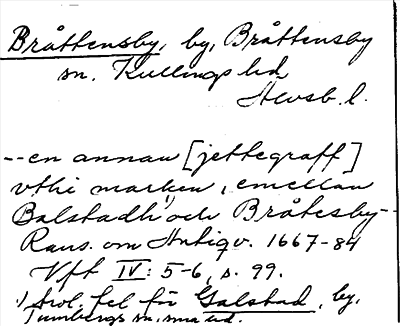 Bråttensby, by, Bråttensby
sn. Kullings hd
Älvsb. l.
--en annan [jettegraff]
vthi marken, emellan
Balstadh¹⁾ och Bråtesby--
Rans. om Antiqv. 1667-84
Vft IV: 5-6, s. 99.
¹⁾ Trol. fel för Galstad, by,
sn, sma hd.